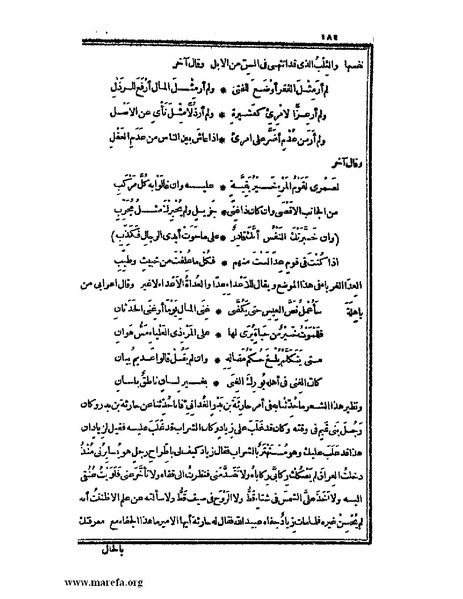 ١٨٤
نفسها والثلب الذى قد انتهى فى السن من الابل وقال آخر
لم أر مثل الفقر أوضع للفتى * ولم أر مثل المال أرفع للرذل
ولم أر عزا لامرئ كعشيرة * ولم أر ذلا مثل نأى عن الاصل
ولم أر من عدم أضر على امرئ * اذا عاش بين الناس من عدم العقل
وقال آخر
لعمرى لقوم المرء خير بقية * عليه وان غالوا به كل مركب
من الجانب الاقصى وان كان ذا غنى * جزيل ولم يخبرك مثل مجرب
(وان خبرتك النفس أنك قادر * على ما حوت أيدى الرجال فكذب)
اذا كنت فى قوم عدا لست منهم * فكل ما علفت من خبيث وطيب
العدا الغرباء فى هذا الموضع ويقال للاعداء عدا والعداة الاعداء لا غير وقال اعرابى من
باهلة سأعمل نص العيس حتى يكفنى * غنى المال يوما أو غنى الحدثان
فللموت خير من حياة يرى لها * على المرء ذى العلياء مس هوان
متى يتكلم يلغ حكم مقاله * وان لم يقل قالوا عديم بيان
كأن الغنى فى أهله بورك الغنى * بغير لسان ناطق بلسان
ونظير هذا الشعر ما حدثنا به فى أمر حارثة بن بدر الغدانى فانا حدثنا عن حارثة بن بدر وكان
رجل بنى تميم فى وقته وكان قد غلب على زياد وكان الشراب قد غلب عليه فقيل لزياد ان
هذا قد غلب عليك وهو مستهتر بالشراب فقال زياد كيف لى باطراح رجل هو يسايرنى منذ
دخلت العراق لم يصكك ركابى ركاباه ولا تقدمنى فنظرت الى قفاه ولا تأخر عنى فلويت عنقى
اليه ولا أخذ على الشمس فى شتاء قط ولا الروح فى صيف قط ولا سألته عن علم الا ظننت أنه
لم يحسن غيره فلما مات زياد جفاه عبيد الله فقال له حارثة أيها الامير ما هذا الجفاء مع معرفتك
بالحال
www.marefa.org